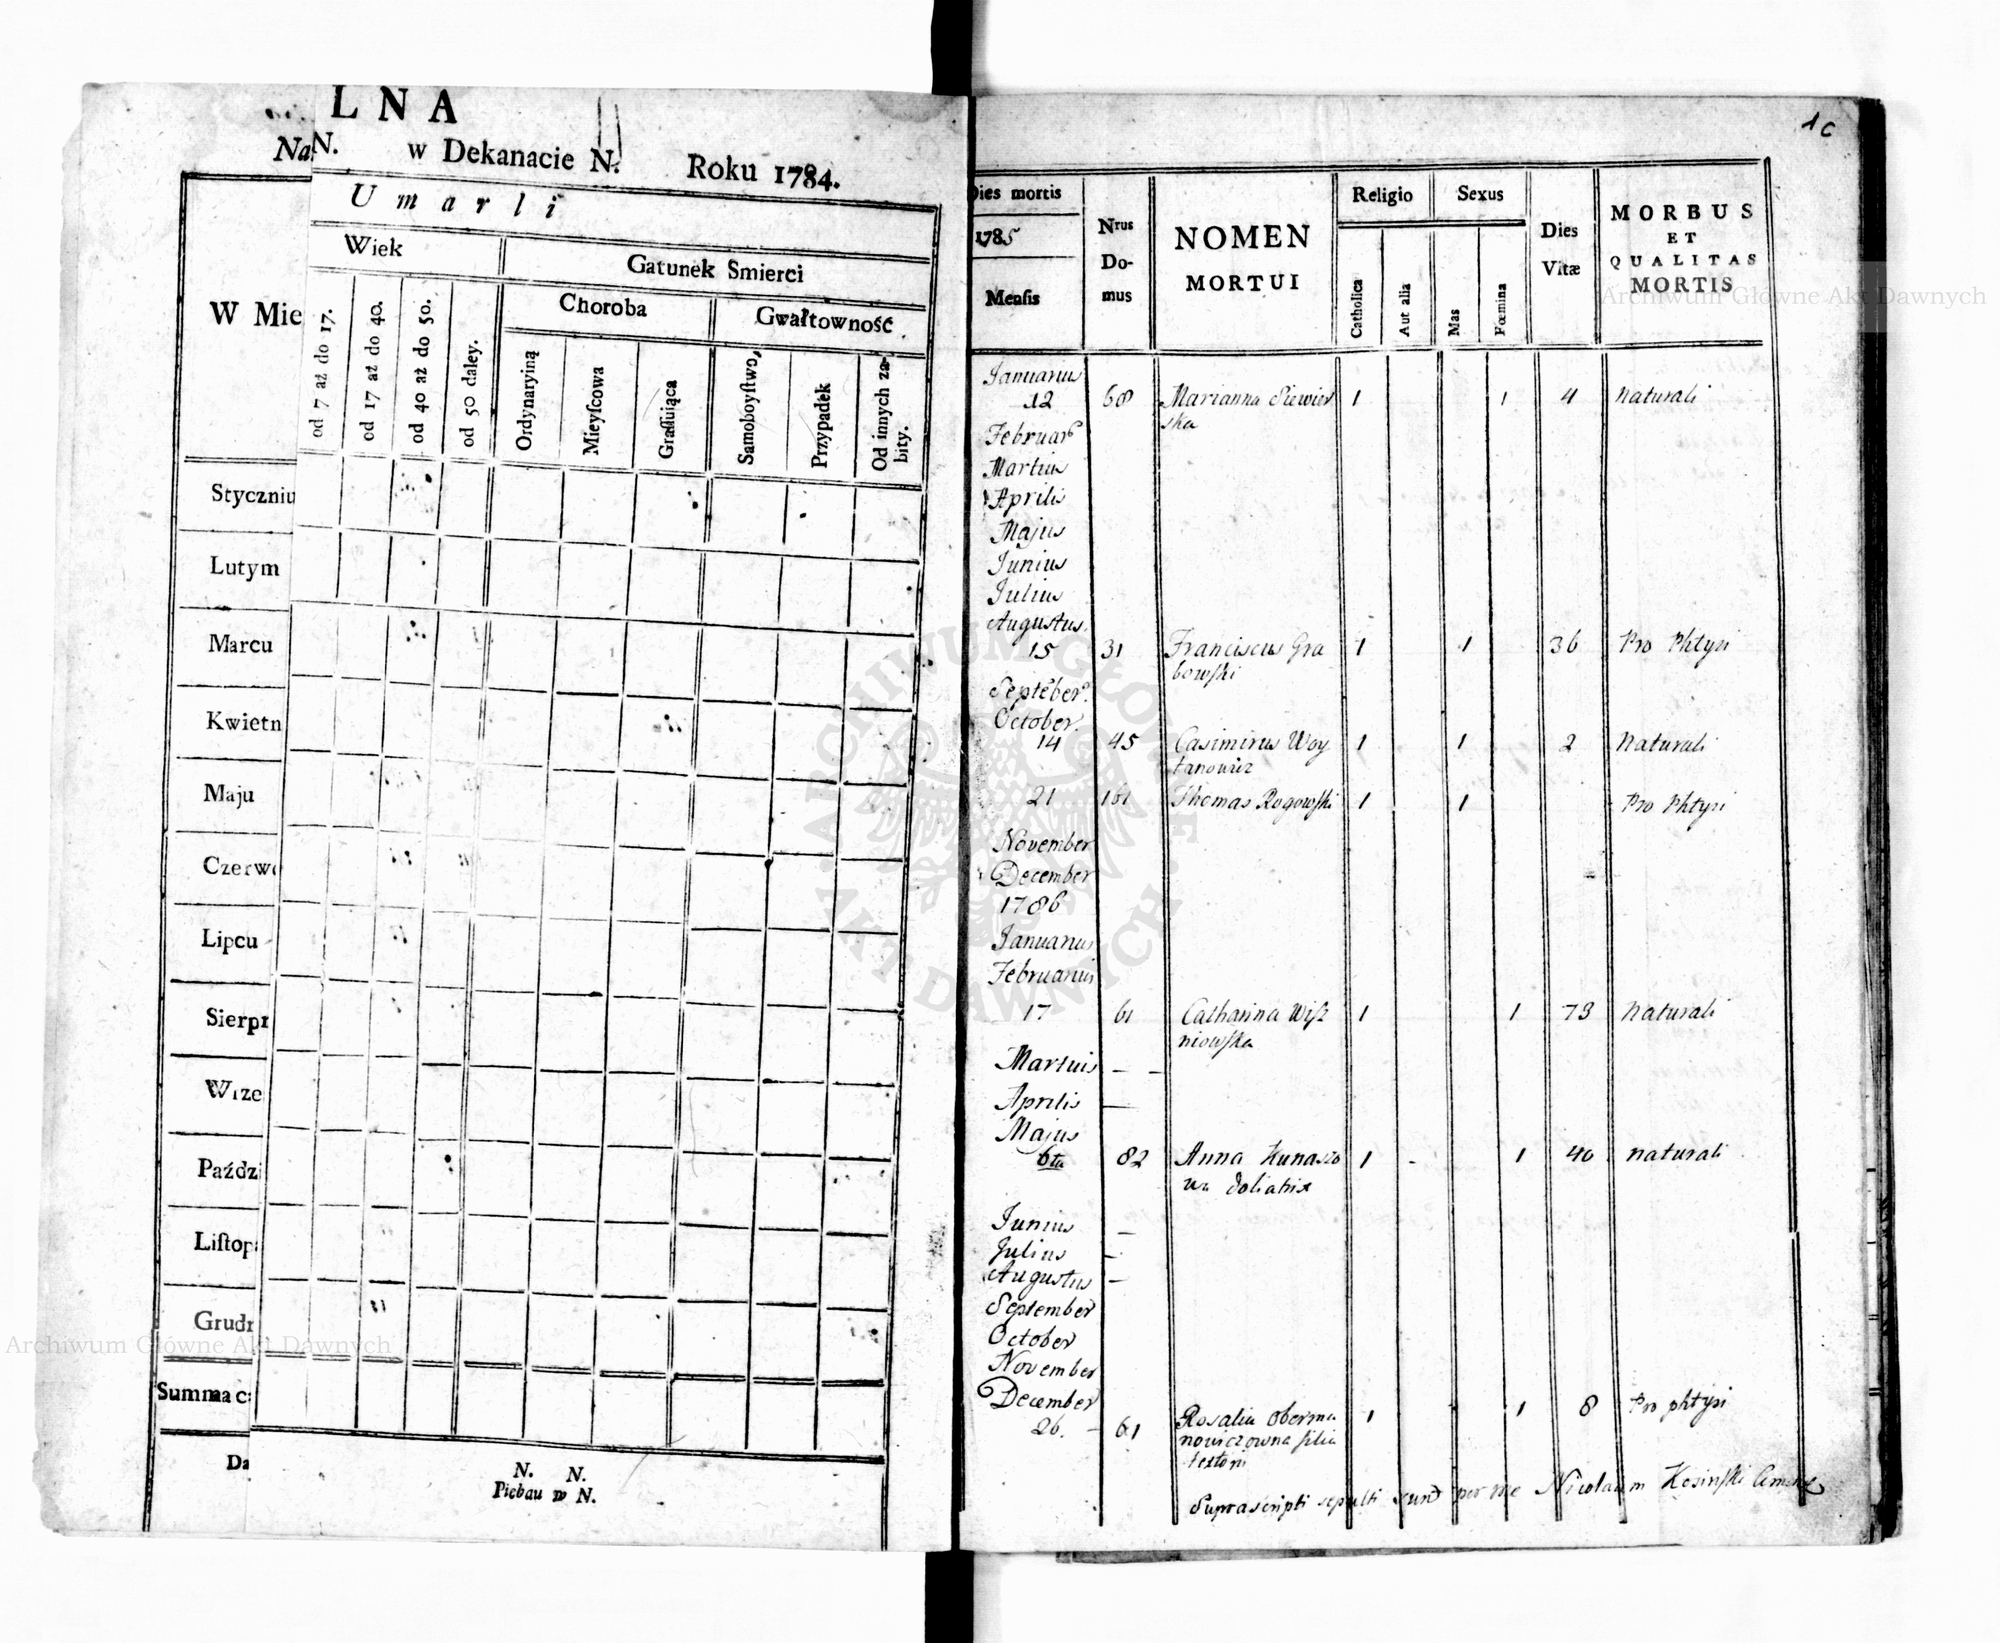 L N A
Na N. w Dekanacie N. Roku 1784.
U m a r l i
W Mie
Wiek
Gatunek Smierci
Choroba
Gwałtowność
od 7 aż do 17.
od 17 aż do 40.
od 40 aż do 50.
od 50 daley.
Ordynaryiną
Mieyſcowa
Graſſuiąca
Samoboyſtwo,
Przypadek
Od innych za-
bity.
Styczniu
Lutym
Marcu
Kwietn
Maju
Czerwc
Lipcu
Sierpn
Wrze
Paździ
Liſtop
Grudn
Summa c
Da
N. N.
Pleban w N.
Dies mortis
1785
Mensis
Nrus
Do-
mus
NOMEN
MORTUI
Religio
Catholica
Aut alia
Sexus
Mas
Fœmina
Dies
Vitæ
MORBUS
ET
QUALITAS
MORTIS
Januarius
12 68 Marianna Siewier 1 1 4 naturali
ska
Februar
Martius
Aprilis
Majus
Junius
Julius
Augustus
15 31 Franciscus Gra 1 1 36 Pro Phtysi
bowſki
Septeber
October
14 45 Casimirus Woy 1 1 2 Naturali
tanowicz
21 161 Thomas Rogowſki 1 1 Pro Phtysi
November
December
1786
Januarius
Februarius
17 61 Catharina Wiſz 1 1 73 naturali
niowſka
Martius
Aprilis
Majus
6ta 82 Anna 1 1 40 naturali
Junius
Julius
Augustus
September
October
November
December
26. 61 Rosalia Oberma 1 1 8 Pro phtysi
nowiczowna filia
Suprascripti sepulti sunt per me Nicolaum
Archiwum Główne Akt Dawnych
Archiwum Główne Akt Dawnych
ARCHIWUM GŁÓWNE
AKT DAWNYCH